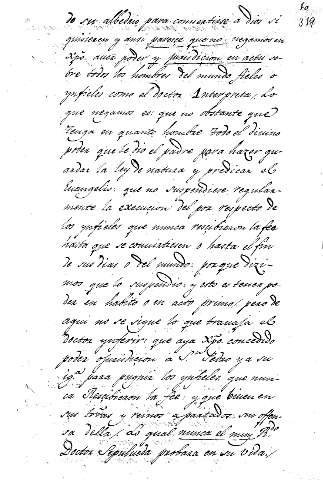 fo
319
do su albedrio para convertirse a dios si
quisieren y ansi parece que no negamos en
Xpo. aver poder y jurisdicion en actu so-
bre todos los hombres del mundo fieles o
ynfieles como el Doctor Interpreta, lo
que negamos es: que no obstante que
tenga en quanto hombre todo el divino
poder que le dio el padre para hazer gu-
ardar la ley de natura y predicar el
Evangelio: que no suspendiese regular-
mente la execucion del por respecto de
los ynfieles que nunca recibieron la fee
hasta que se convirtiesen o hasta el fin
de sus dias o del mundo: porque dezi-
mos que lo suspendio: y esto es tener po-
der en habito o en acto primo, pero de
aqui no se sigue lo que trabaja el
Doctor ynferir: que aya Xpo. concedido
poder o jurisdicion a St. Pedro y a su
iga. para punir los ynfieles que nun-
ca Recibieron la fee, y que biven en
sus tierras y reinos apartados sin offen-
sa della, lo qual nunca el muy Rdo.
Doctor Sepulveda probara en su vida,